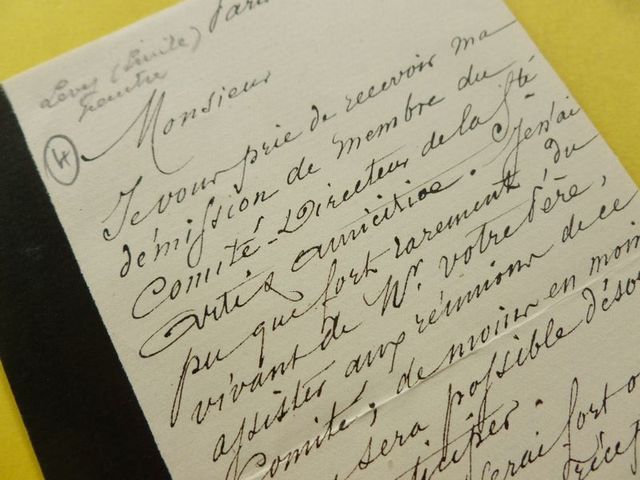 Paris
Levy (Emile)
Peintre
4
Monsieur
Je vous prie de recevoir ma
démission de membre du
Comité-Directeur de la Sté
Artis Amicitiae. Je n'ai
pu que fort rarement, du
vivant de Mr votre Père,
assister aux réunions de ce
Comité; de moins en moins
sera possible désor
ticiper.
serai fort o
récep